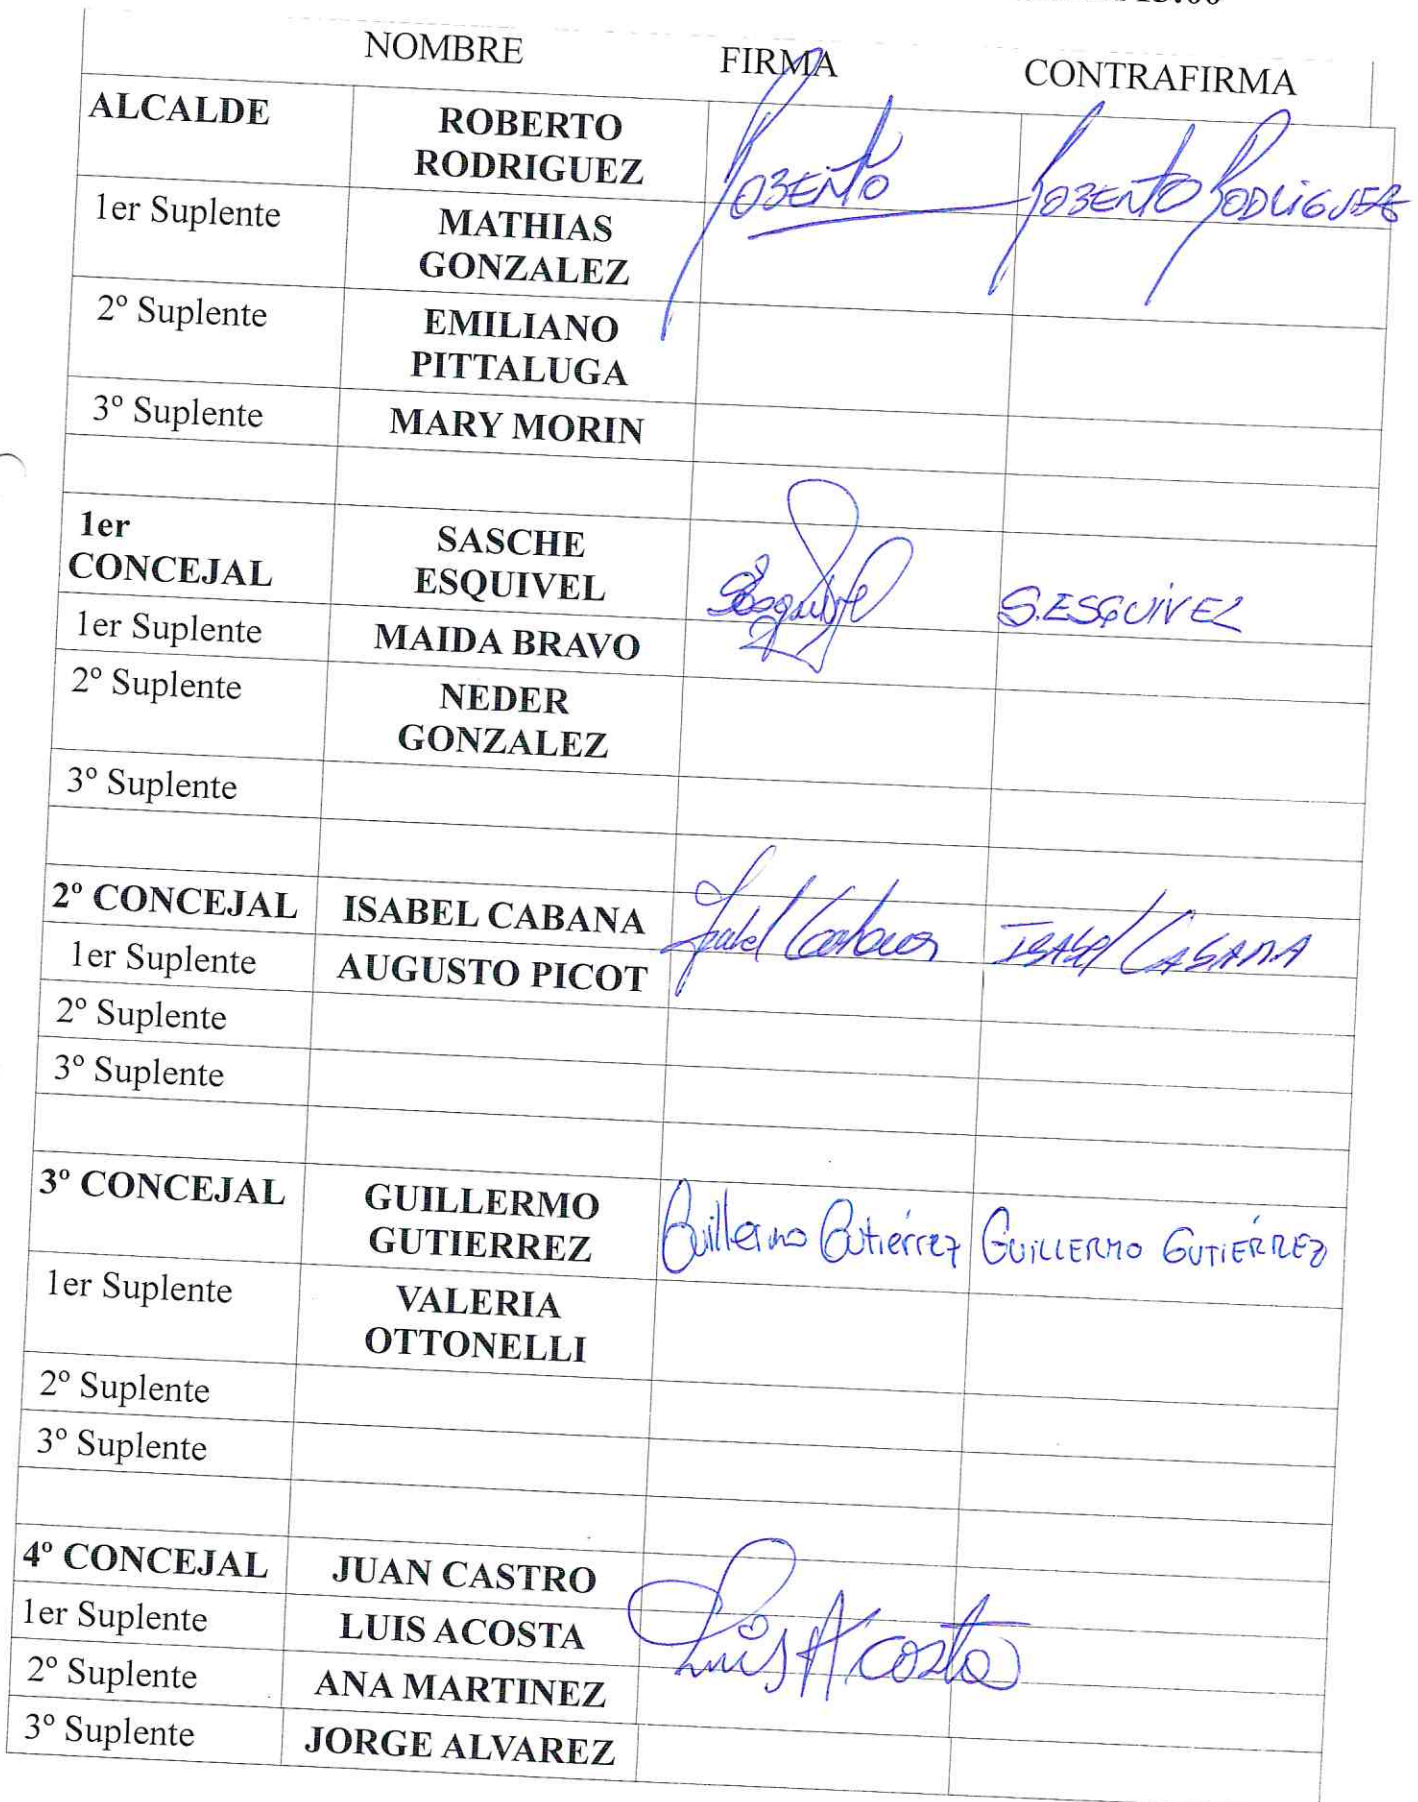 NOMBRE FIRMA CONTRAFIRMA
ALCALDE ROBERTO RODRIGUEZ Roberto Roberto Rodriguez
1er Suplente MATHIAS GONZALEZ
2º Suplente EMILIANO PITTALUGA
3º Suplente MARY MORIN
1er CONCEJAL SASCHE ESQUIVEL SEsquivel S.ESQUIVEL
1er Suplente MAIDA BRAVO
2º Suplente NEDER GONZALEZ
3º Suplente
2º CONCEJAL ISABEL CABANA Isabel Cabana ISABEL CABANA
1er Suplente AUGUSTO PICOT
2º Suplente
3º Suplente
3º CONCEJAL GUILLERMO GUTIERREZ Guillermo Gutiérrez GUILLERMO GUTIÉRREZ
1er Suplente VALERIA OTTONELLI
2º Suplente
3º Suplente
4º CONCEJAL JUAN CASTRO
1er Suplente LUIS ACOSTA Luis Acosta
2º Suplente ANA MARTINEZ
3º Suplente JORGE ALVAREZ